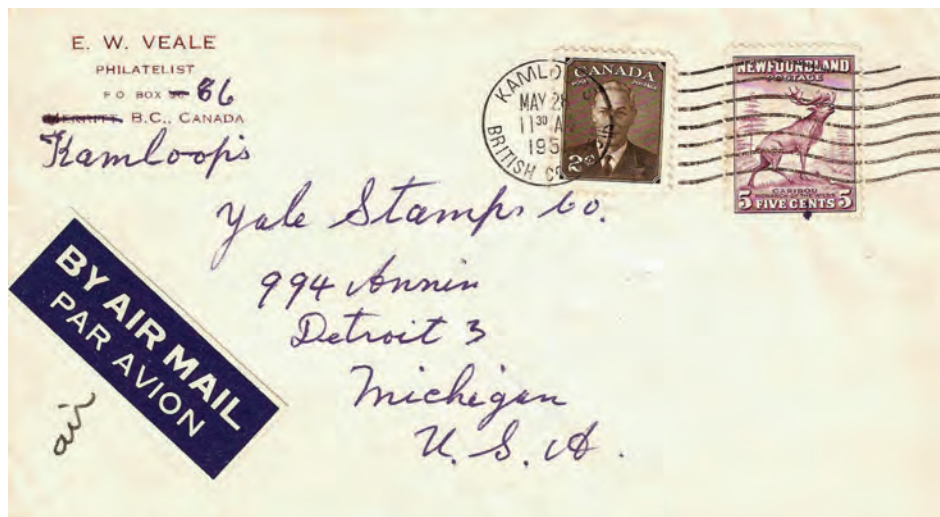 E. W. VEALE
PHILATELIST
P O BOX 86
MERRITT, B.C., CANADA
Kamloops
KAMLO
MAY 28
11 30 A
195
BRITISH CO
CANADA
POSTES POSTAGE
2
NEWFOUNDLAND
POSTAGE
CARIBOU
5 FIVE CENTS 5
Yale Stamps Co.
994 Annin
Detroit 3
Michigan
U. S. A.
BY AIR MAIL
PAR AVION
air